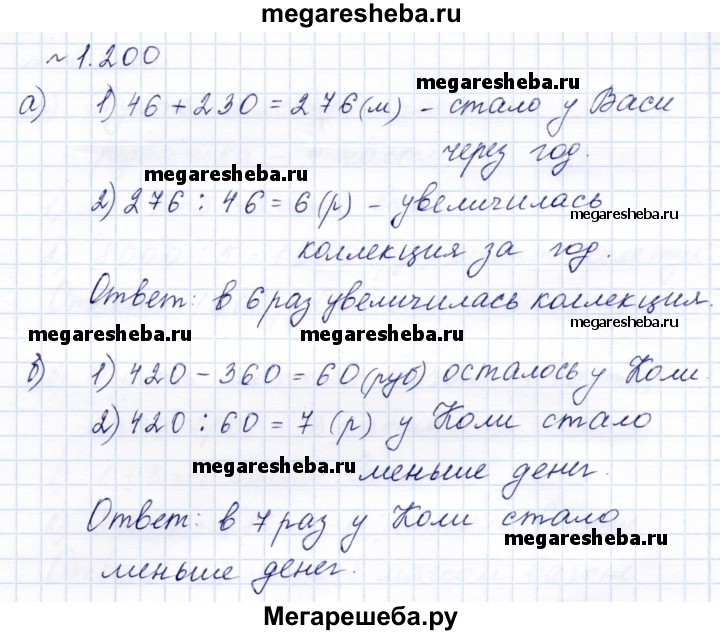 megaresheba.ru
~ 1.200
а) 1) 46 + 230 = 276 (м) - стало у Васи
megaresheba.ru
через год.
megaresheba.ru
2) 276 : 46 = 6 (р) - увеличилась
megaresheba.ru
коллекция за год.
Ответ: в 6 раз увеличилась коллекция.
megaresheba.ru megaresheba.ru megaresheba.ru
б) 1) 420 - 360 = 60 (руб) осталось у Коли.
2) 420 : 60 = 7 (р) у Коли стало
megaresheba.ru меньше денег.
Ответ: в 7 раз у Коли стало
megaresheba.ru
меньше денег.
Мегарешеба.ру